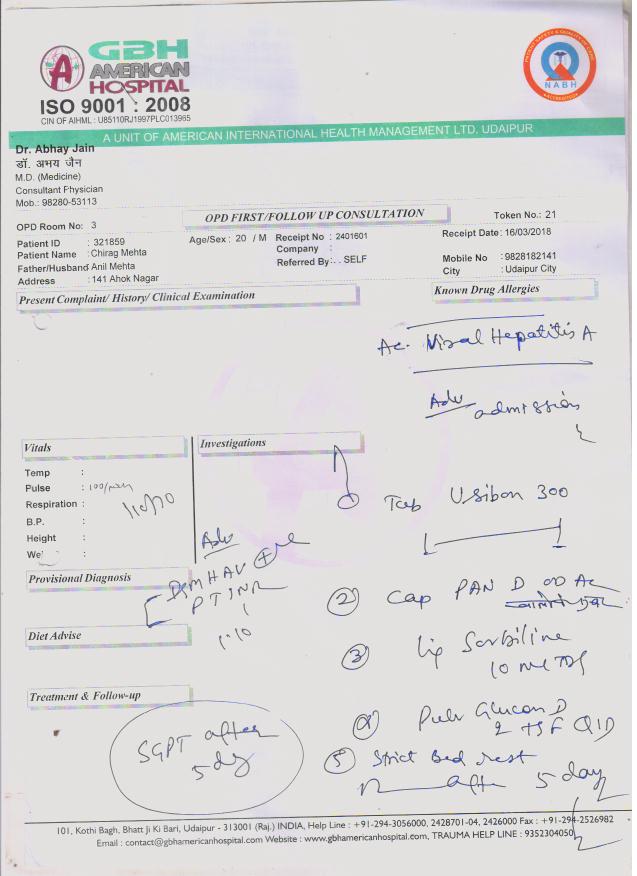 GBH
AMERICAN
HOSPITAL
ISO 9001 : 2008
CIN OF AIHML : U85110RJ1997PLC013965
PATIENT SAFETY & QUALITY OF CARE
NABH
ACCREDITED
A UNIT OF AMERICAN INTERNATIONAL HEALTH MANAGEMENT LTD. UDAIPUR
Dr. Abhay Jain
डॉ. अभय जैन
M.D. (Medicine)
Consultant Physician
Mob.: 98280-53113
OPD Room No: 3
OPD FIRST/FOLLOW UP CONSULTATION
Token No.: 21
Patient ID : 321859
Age/Sex : 20 / M
Receipt No : 2401601
Receipt Date: 16/03/2018
Patient Name : Chirag Mehta
Company :
Father/Husband Anil Mehta
Referred By: . . SELF
Mobile No : 9828182141
Address : 141 Ahok Nagar
City : Udaipur City
Present Complaint/ History/ Clinical Examination
Known Drug Allergies
Ac. Viral Hepatitis A
Adv admission
Vitals
Investigations
Temp :
Pulse : 100/min
Respiration :
110/70
B.P. :
Height :
We :
① Tab Usibon 300
Adv
IgM HAV +ve
PT INR
1.10
Provisional Diagnosis
② Cap PAN D OD AC
Diet Advise
③ Liq Sorbiline
10 ml TDS
Treatment & Follow-up
④ Pulv Glucon D
2 TSF QID
SGPT after
5 dy
⑤ Strict Bed rest
after 5 day
101, Kothi Bagh, Bhatt Ji Ki Bari, Udaipur - 313001 (Raj.) INDIA, Help Line : +91-294-3056000, 2428701-04, 2426000 Fax : +91-294-2526982
Email : contact@gbhamericanhospital.com Website : www.gbhamericanhospital.com, TRAUMA HELP LINE : 9352304050